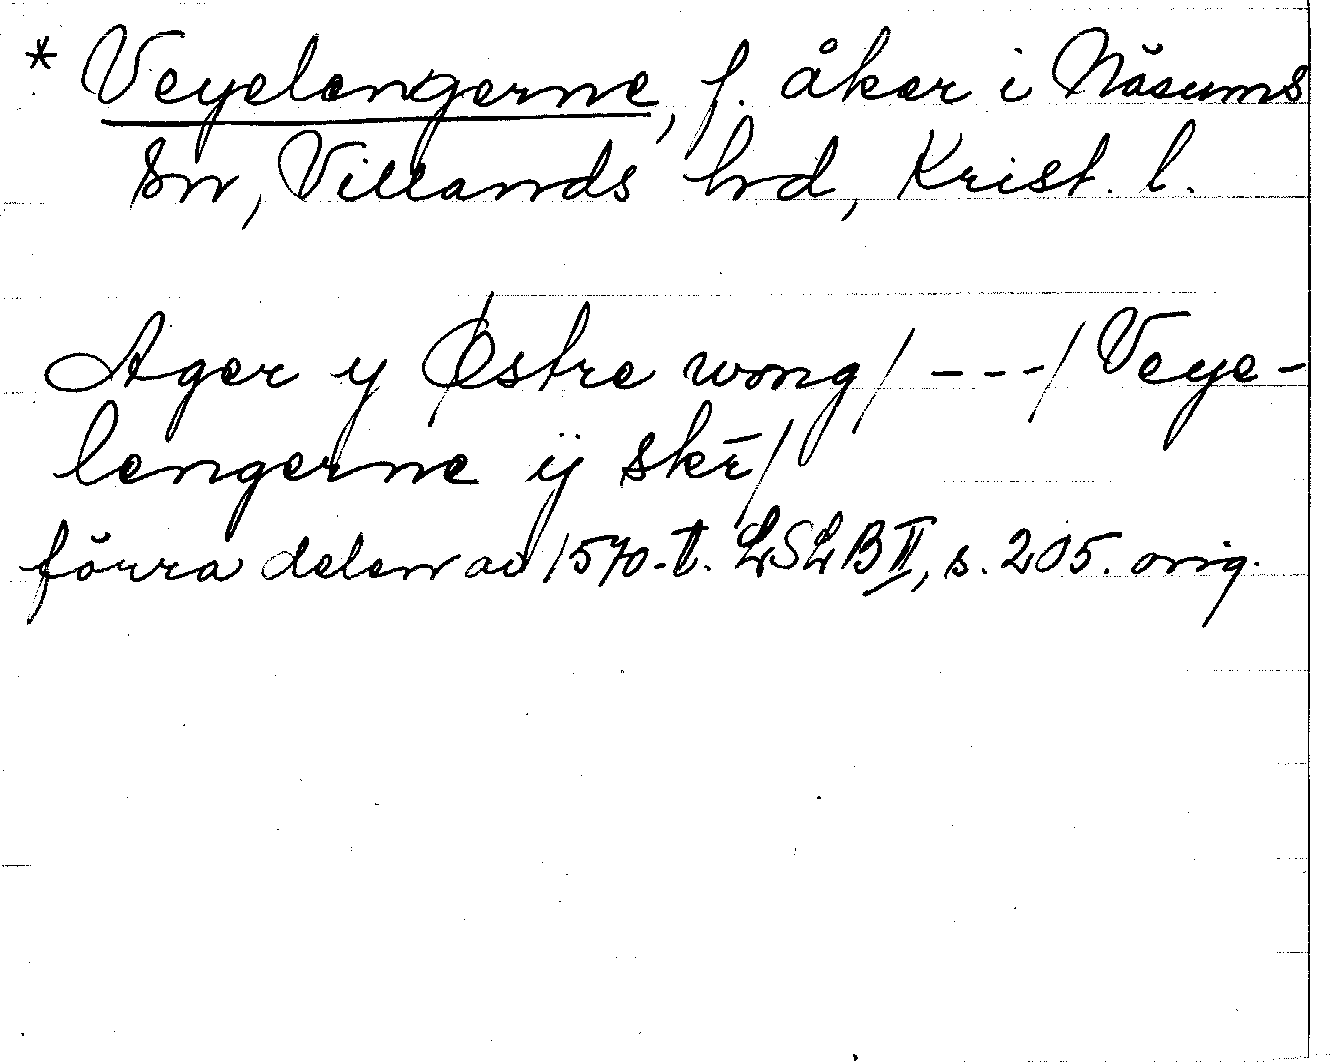 * Veyelengerne, f. åker i Näsums
sn, Villands hd, Krist. l.
Ager y Østre wong / - - - / Veye-
lengerne ÿ skē /
förra delen av 1570-t. LSLB II, s. 205. orig.